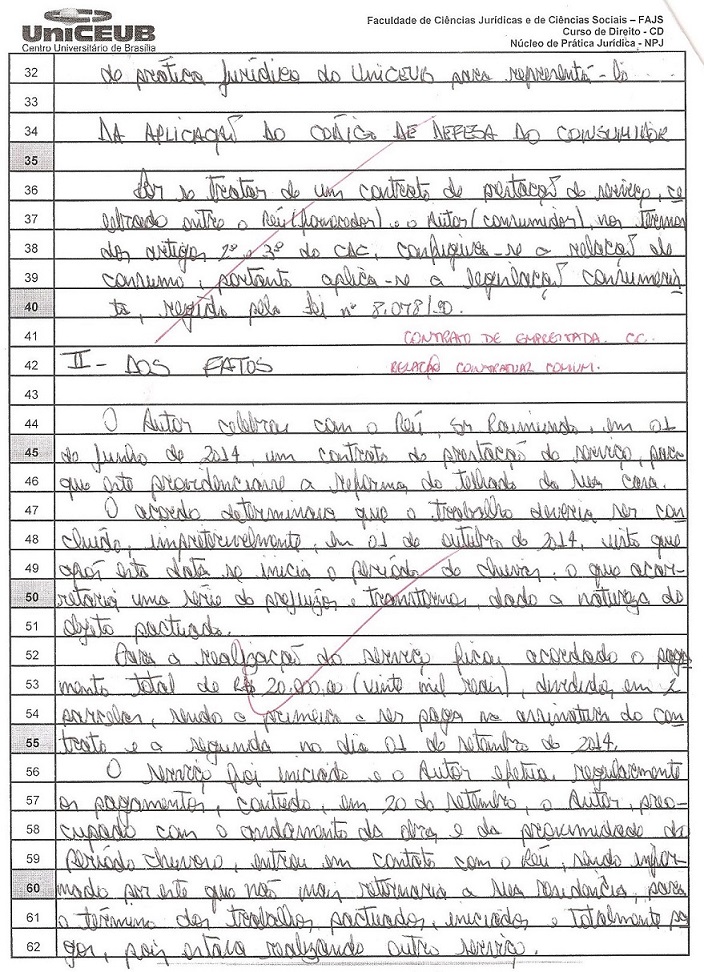 UniCEUB
Centro Universitário de Brasília
Faculdade de Ciências Jurídicas e de Ciências Sociais – FAJS
Curso de Direito - CD
Núcleo de Prática Jurídica - NPJ
32 de prática Jurídica do UniCEUB para representá-lo
33
34 DA APLICAÇÃO DO CÓDIGO DE DEFESA DO CONSUMIDOR
35
36 Por se tratar de um contrato de prestação de serviço, ce
37 lebrado entre o Réu (fornecedor) e o Autor (consumidor), nos termos
38 dos artigos 2º e 3º do CDC, configura-se a relação de
39 consumo, portanto aplica-se a legislação consumeris
40 ta, regida pela Lei nº 8.078/90.
41 CONTRATO DE EMPREITADA. CC.
42 II - DOS FATOS RELAÇÃO CONTRATUAL COMUM.
43
44 O Autor celebrou com o Réu, Sr Raimundo, em 01
45 de Junho de 2014, um contrato de prestação de serviço, para
46 que este providenciasse a reforma do telhado da sua casa.
47 O acordo determinava que o trabalho deveria ser con
48 cluído, impreterivelmente, em 01 de outubro de 2014, visto que
49 após esta data se inicia o período de chuvas, o que acar-
50 retaria uma série de prejuízos e transtornos, dado a natureza do
51 objeto pactuado.
52 Para a realização do serviço ficou acordado o paga
53 mento total de R$ 20.000,00 (vinte mil reais), dividido em 2
54 parcelas, sendo a primeira a ser paga na assinatura do con
55 trato e a segunda no dia 01 de setembro de 2014.
56 O serviço foi iniciado e o Autor efetua regularmente
57 os pagamentos, contudo, em 20 de setembro, o Autor, preo-
58 cupado com o andamento da obra e da proximidade do
59 período chuvoso, entrou em contato com o Réu, sendo infor-
60 mado por este que não mais retornaria a sua residência, para
61 o término dos trabalhos pactuados, iniciados e totalmente pa
62 gos, pois estava realizando outro serviço.